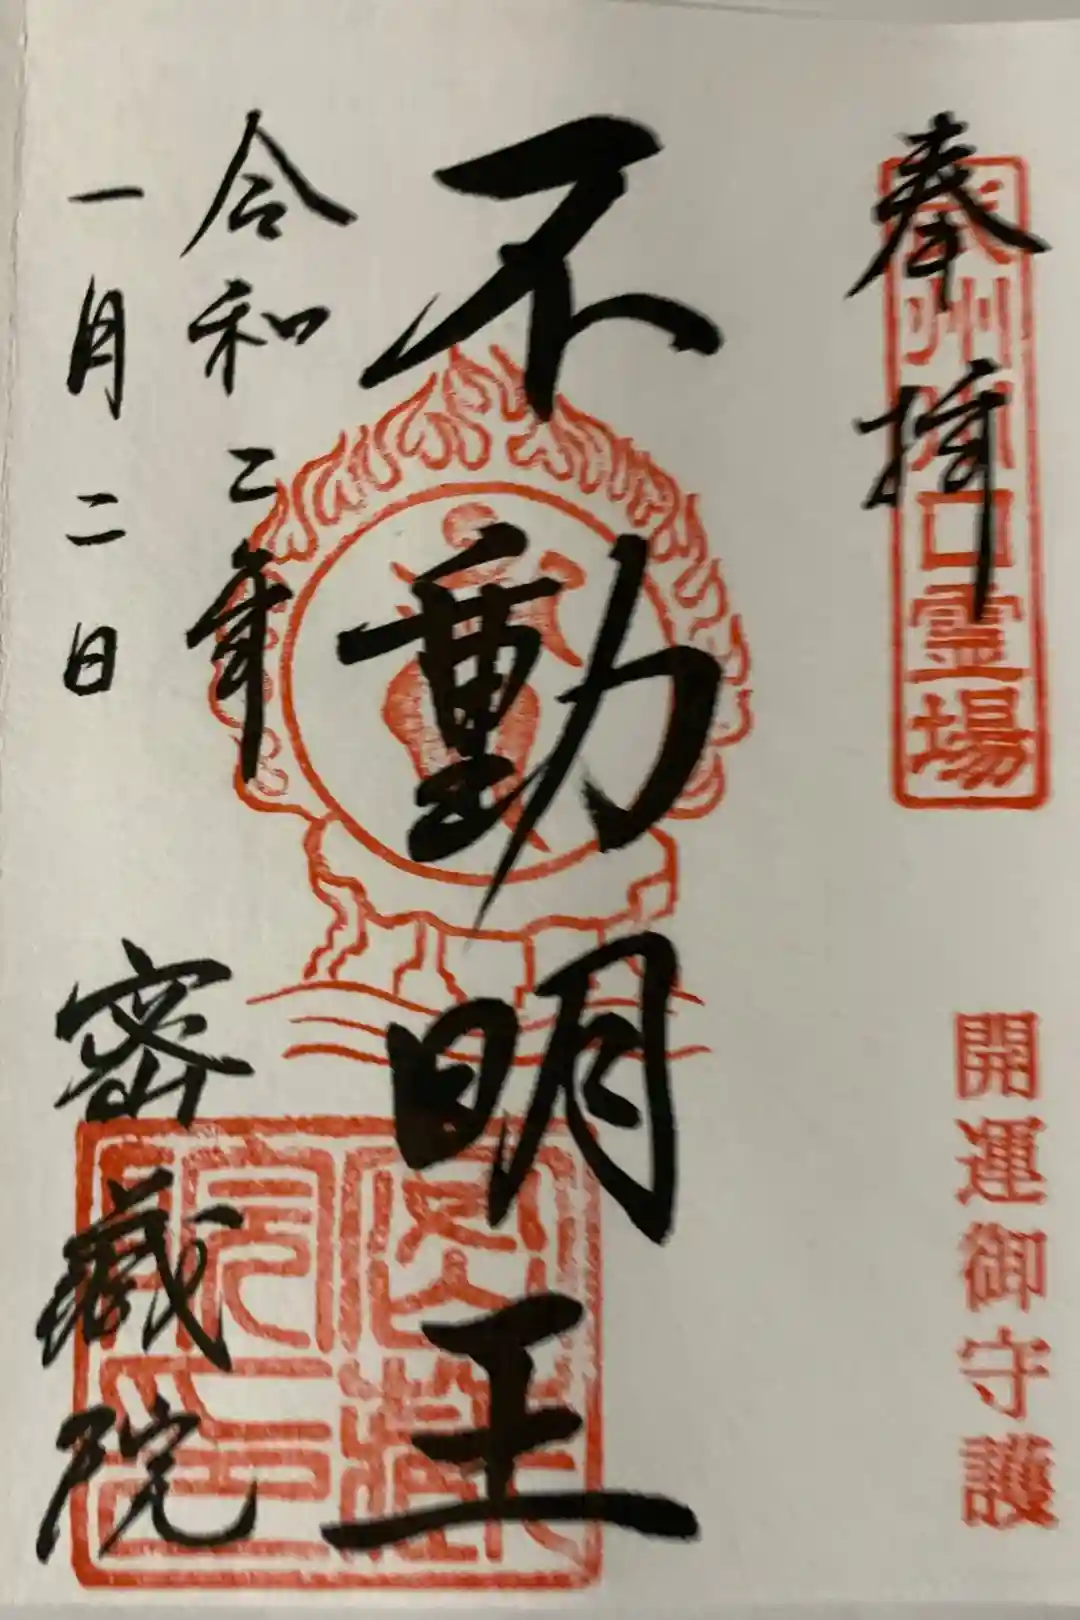 奉拝
州川口霊場
開運御守護
不動明王
令和二年
一月二日
密蔵院
密蔵院印